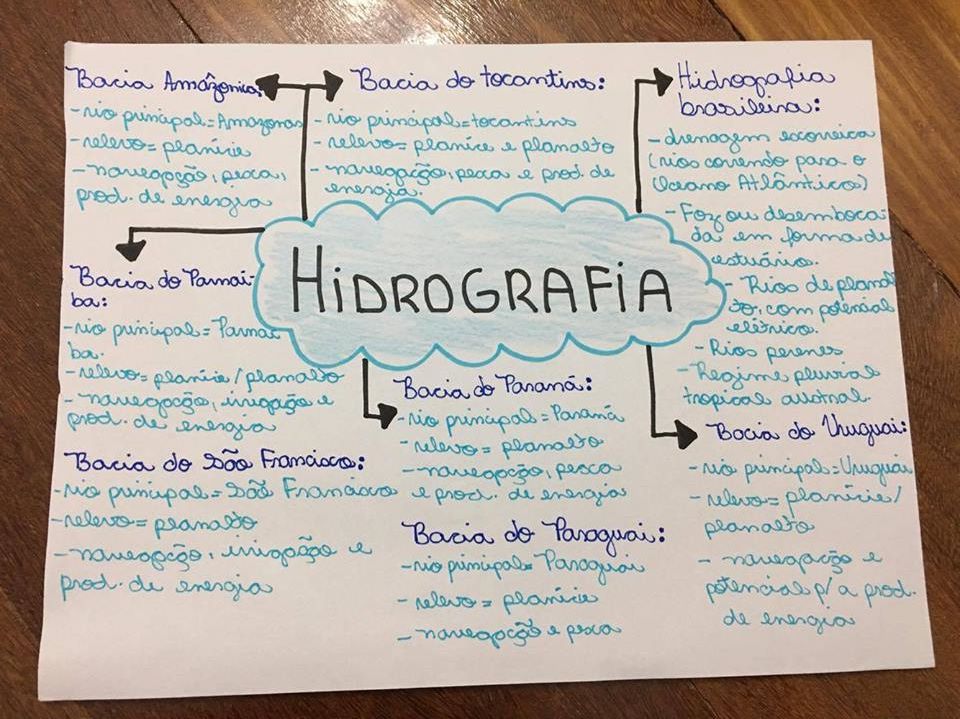 Bacia Amâzonica:
-rio principal=Amazonas
-relevo= planície
-navegação, pesca,
prod. de energia
Bacia do tocantins:
-rio principal=tocantins
-relevo= planíce e planalto
-navegação, pesca e prod. de
energia.
Hidrografia
brasileira:
-drenagem exorreica
(rios correndo para o
(Oceano Atlântico)
-Foz ou desemboca
da em forma de
estuário.
-Rios de planal
to, com potencial
elétrico.
-Rios perenes
-Regime pluvial
tropical austral.
HIDROGRAFIA
Bacia do Parnaí-
ba:
-rio principal= Parnaí
ba.
-relevo= planície/planalto
-navegação, irrigação e
prod. de energia
Bacia do São Francisco:
-rio principal= São Francisco
-relevo= planalto
-navegação, irrigação e
prod. de energia
Bacia do Paraná:
-rio principal= Paraná
-relevo= planalto
-navegação, pesca
e prod. de energia
Bacia do Paraguai:
-rio principal= Paraguai
-relevo= planície
-navegação e pesca
Bacia do Uruguai:
-rio principal=Uruguai
-relevo= planície/
planalto
-navegação e
potencial p/ a prod.
de energia